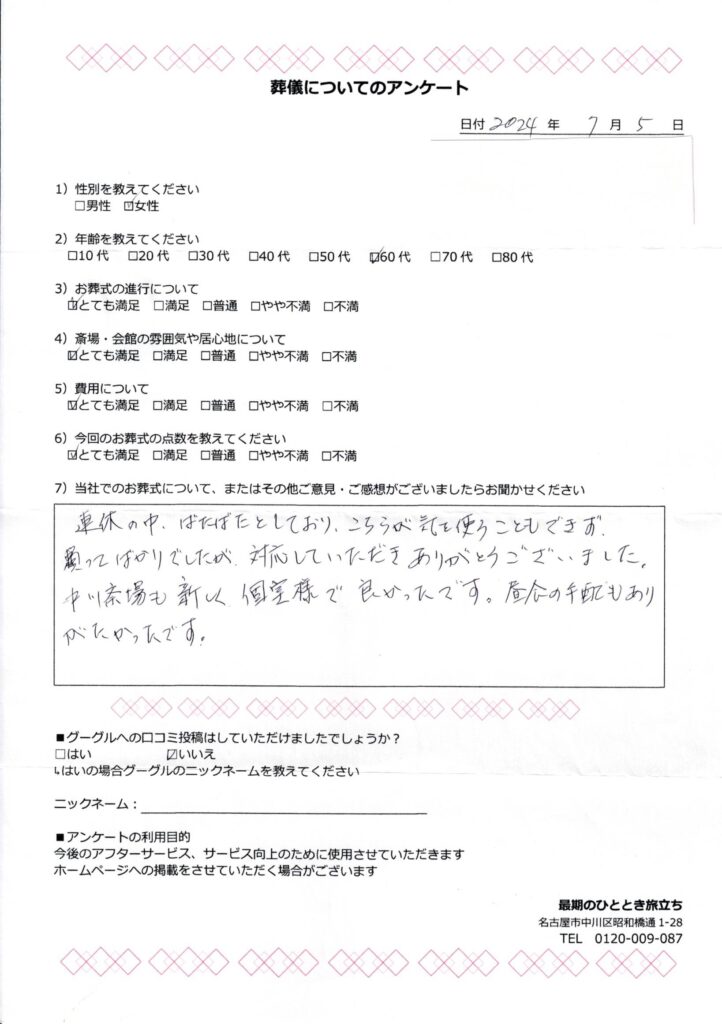 葬儀についてのアンケート
日付 2024 年 7 月 5 日
1）性別を教えてください
□男性 ☑女性
2）年齢を教えてください
□10 代 □20 代 □30 代 □40 代 □50 代 ☑60 代 □70 代 □80 代
3）お葬式の進行について
☑とても満足 □満足 □普通 □やや不満 □不満
4）斎場・会館の雰囲気や居心地について
☑とても満足 □満足 □普通 □やや不満 □不満
5）費用について
☑とても満足 □満足 □普通 □やや不満 □不満
6）今回のお葬式の点数を教えてください
☑とても満足 □満足 □普通 □やや不満 □不満
7）当社でのお葬式について、またはその他ご意見・ご感想がございましたらお聞かせください
連休の中、ばたばたとしており、こちらが気を使うこともできず、
ってばかりでしたが、対応していただきありがとうございました。
中川斎場も新しく個室様で良かったです。昼食の手配もあり
がたかったです。
■グーグルへの口コミ投稿はしていただけましたでしょうか？
□はい ☑いいえ
↳はいの場合グーグルのニックネームを教えてください
ニックネーム：
■アンケートの利用目的
今後のアフターサービス、サービス向上のために使用させていただきます
ホームページへの掲載をさせていただく場合がございます
最期のひととき旅立ち
名古屋市中川区昭和橋通 1-28
TEL 0120-009-087